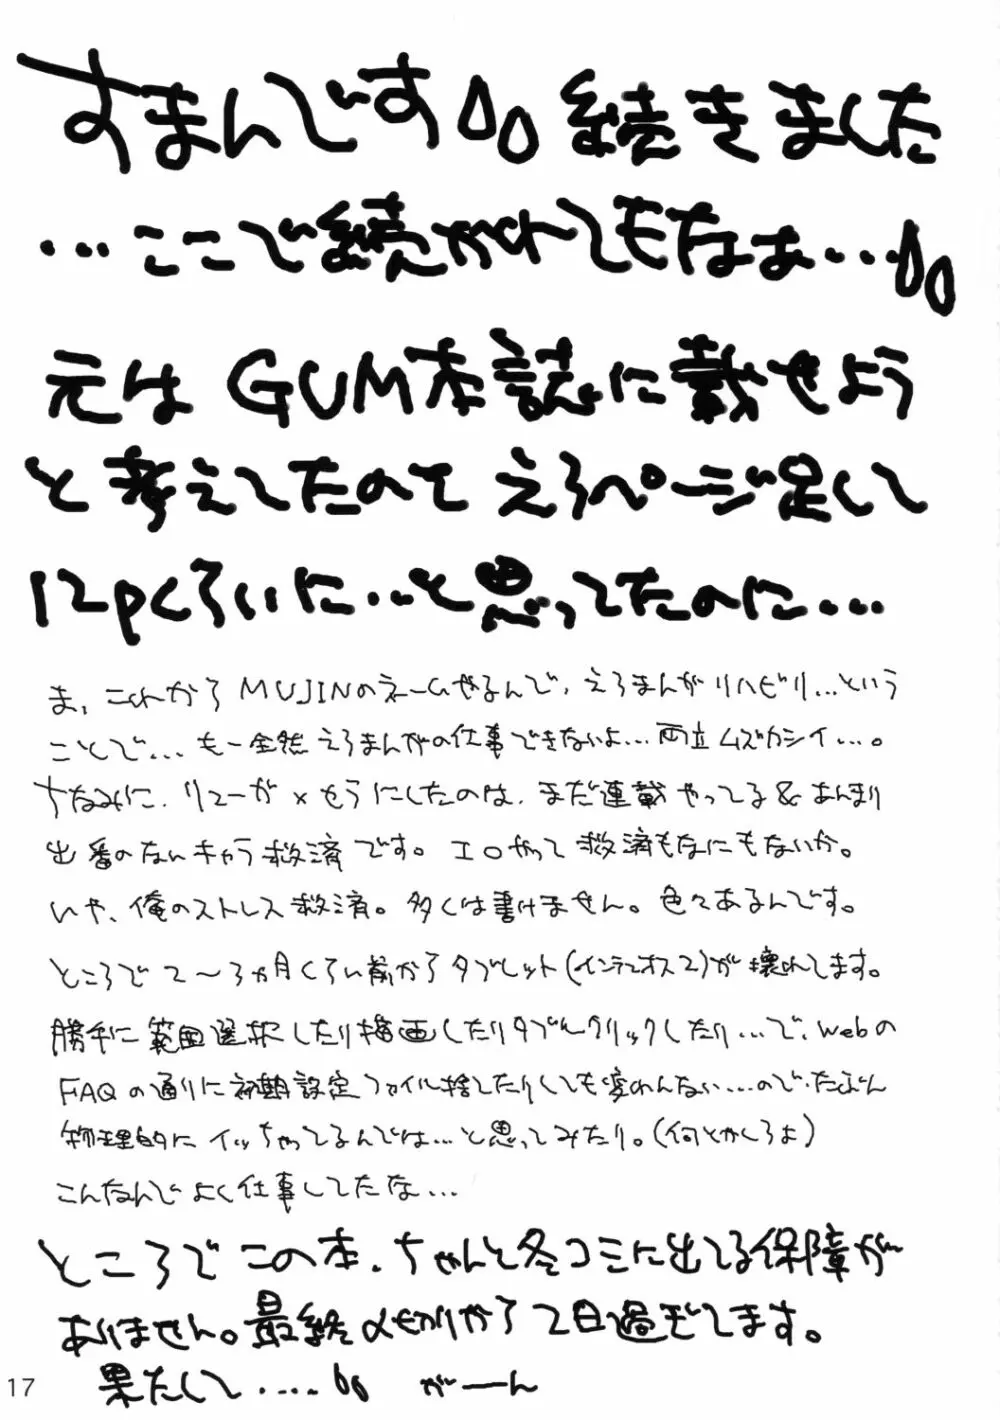 すまんです 続きました
…ここで続かれてもなぁ…
元は GUM本誌に載せよう
と考えてたので えろページ足して
12pくらいに…と思ってたのに…
ま、これから MUJINのネームやるんで、えろまんがリハビリ…という
ことで… もー全然えろまんがの仕事できないよ…両立ムズカシイ…。
ちなみに、リューが×もうにしたのは、まだ連載やってる&あんまり
出番のないキャラ救済です。エロやって救済もなにもないか。
いや、俺のストレス救済。多くは書けません。色々あるんです。
ところで2〜3ヵ月くらい前からタブレット(インテュオス2)が壊れてます。
勝手に範囲選択したり描画したりダブルクリックしたり…で、Webの
FAQの通りに初期設定ファイル捨てたりしても変わんない…ので、たぶん
物理的にイッちゃってるんでは…と思ってみたり。(何とかしろよ)
こんなんでよく仕事してたな…
ところでこの本、ちゃんと冬コミに出てる保障が
ありません。最終〆切りから2日過ぎてます。
果たして…… がーーん
17